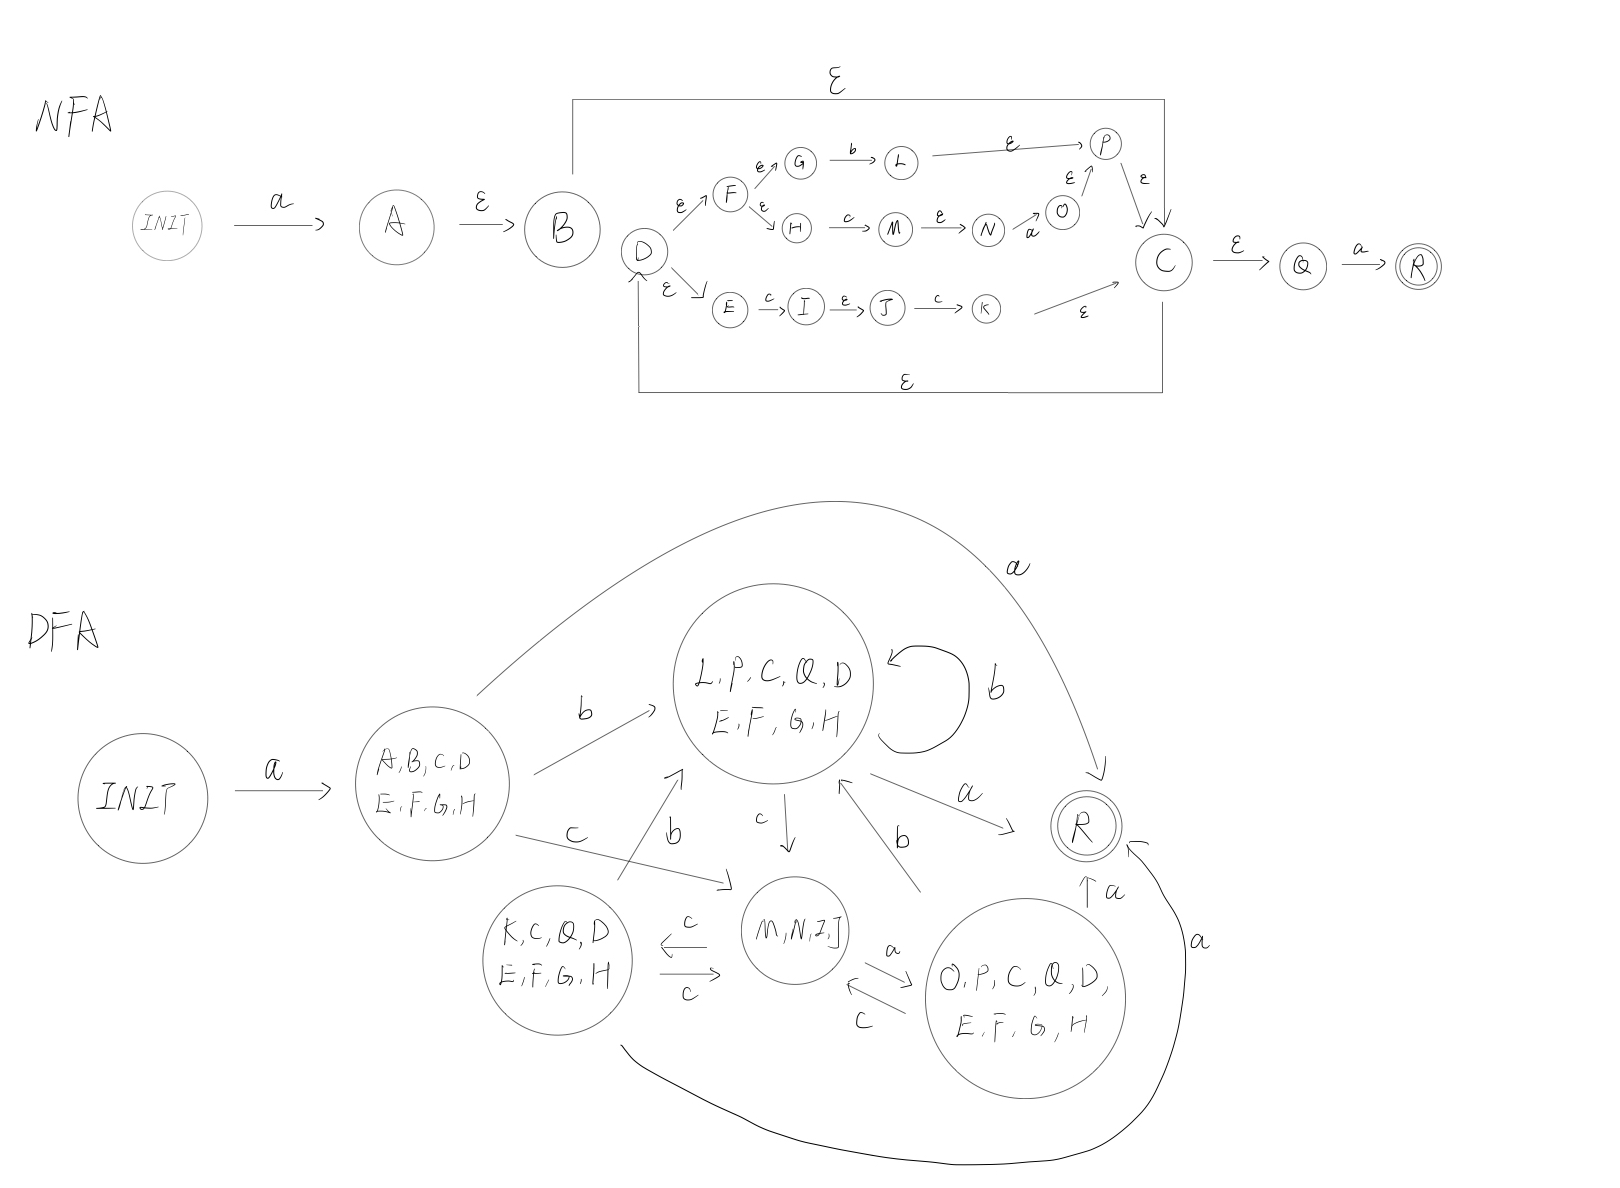 NFA
ε
INIT
a
A
ε
B
D
ε
F
ε
G
b
L
ε
P
ε
ε
H
c
M
ε
N
a
O
ε
ε
E
c
I
ε
J
c
K
ε
C
ε
Q
a
R
ε
DFA
a
INIT
a
A,B,C,D
E,F,G,H
b
L,P,C,Q,D
E,F,G,H
b
c
b
c
a
b
R
K,C,Q,D
E,F,G,H
c
c
M,N,I,J
a
c
O,P,C,Q,D,
E,F,G,H
a
a